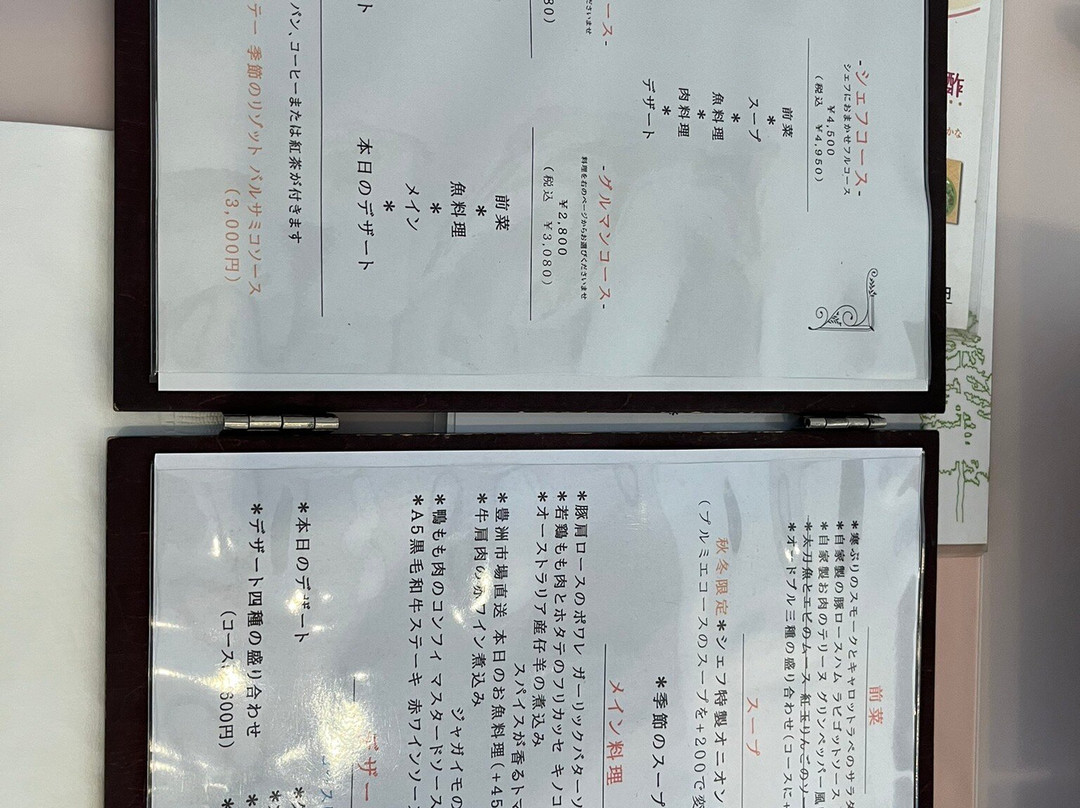 -シェフコース-
シェフにおまかせフルコース
¥4,500
(税込 ¥4,950)
前菜
*
スープ
*
魚料理
*
肉料理
*
デザート
ース-
ださいませ
80)
ト
-グルマンコース-
料理を右のページからお選びくださいませ
¥2,800
(税込 ¥3,080)
前菜
*
魚料理
*
メイン
*
本日のデザート
パン、コーヒーまたは紅茶が付きます
テー 季節のリゾット バルサミコソース
(3,000円)
前菜
*寒ぶりのスモークとキャロットラペのサラダ
*自家製の豚ロースハム ラビゴットソース
*自家製お肉のテリーヌ グリンペッパー風
*太刀魚とエビのムース 紅玉りんごのソー
*オードブル三種の盛り合わせ(コースに+
スープ
秋冬限定*シェフ特製オニオン
(プルミエコースのスープを+200で変
*季節のスープ
メイン料理
*豚肩ロースのポワレ ガーリックバターソ
*若鶏もも肉とホタテのフリカッセ キノコ
*オーストラリア産仔羊の煮込み
スパイスが香るトマ
*豊洲市場直送 本日のお魚料理(+45
*牛肩肉の赤ワイン煮込み
ジャガイモの
*鴨もも肉のコンフィ マスタードソース
*A5黒毛和牛ステーキ 赤ワインソー
デザー
*本日のデザート
*デザート四種の盛り合わせ
(コース 600円)